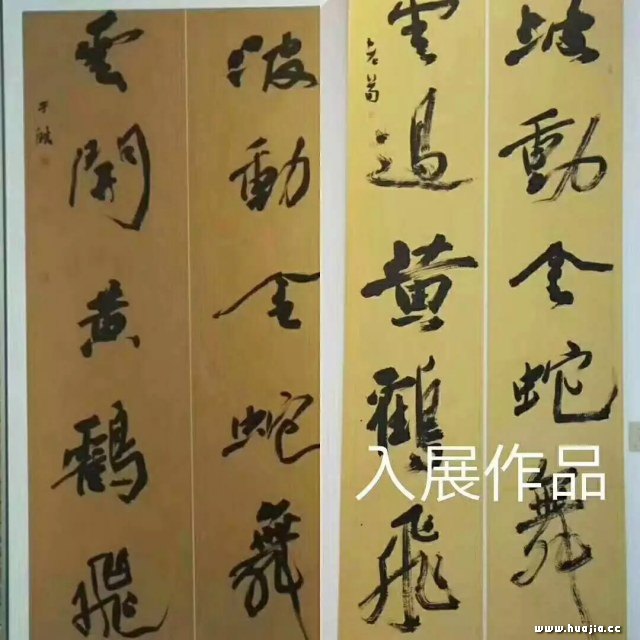 波動金蛇舞
雲開黄鶴飛
波動金蛇舞
雲過黄鶴飛
入展作品
www.huajia.cc